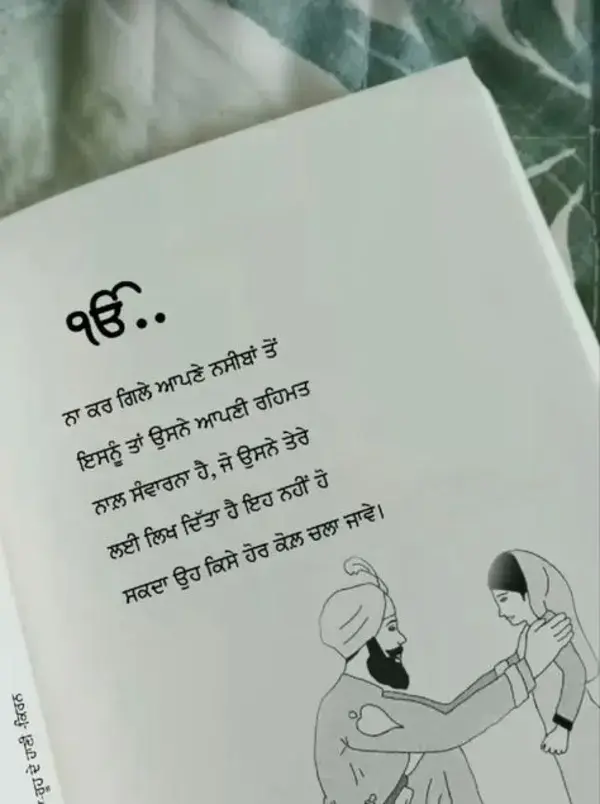 ੴ..
ਨਾ ਕਰ ਗਿਲੇ ਆਪਣੇ ਨਸੀਬਾਂ ਤੋਂ
ਇਸਨੂੰ ਤਾਂ ਉਸਨੇ ਆਪਣੀ ਰਹਿਮਤ
ਨਾਲ਼ ਸੰਵਾਰਨਾ ਹੈ, ਜੋ ਉਸਨੇ ਤੇਰੇ
ਲਈ ਲਿਖ ਦਿੱਤਾ ਹੈ ਇਹ ਨਹੀਂ ਹੋ
ਸਕਦਾ ਉਹ ਕਿਸੇ ਹੋਰ ਕੋਲ਼ ਚਲਾ ਜਾਵੇ।